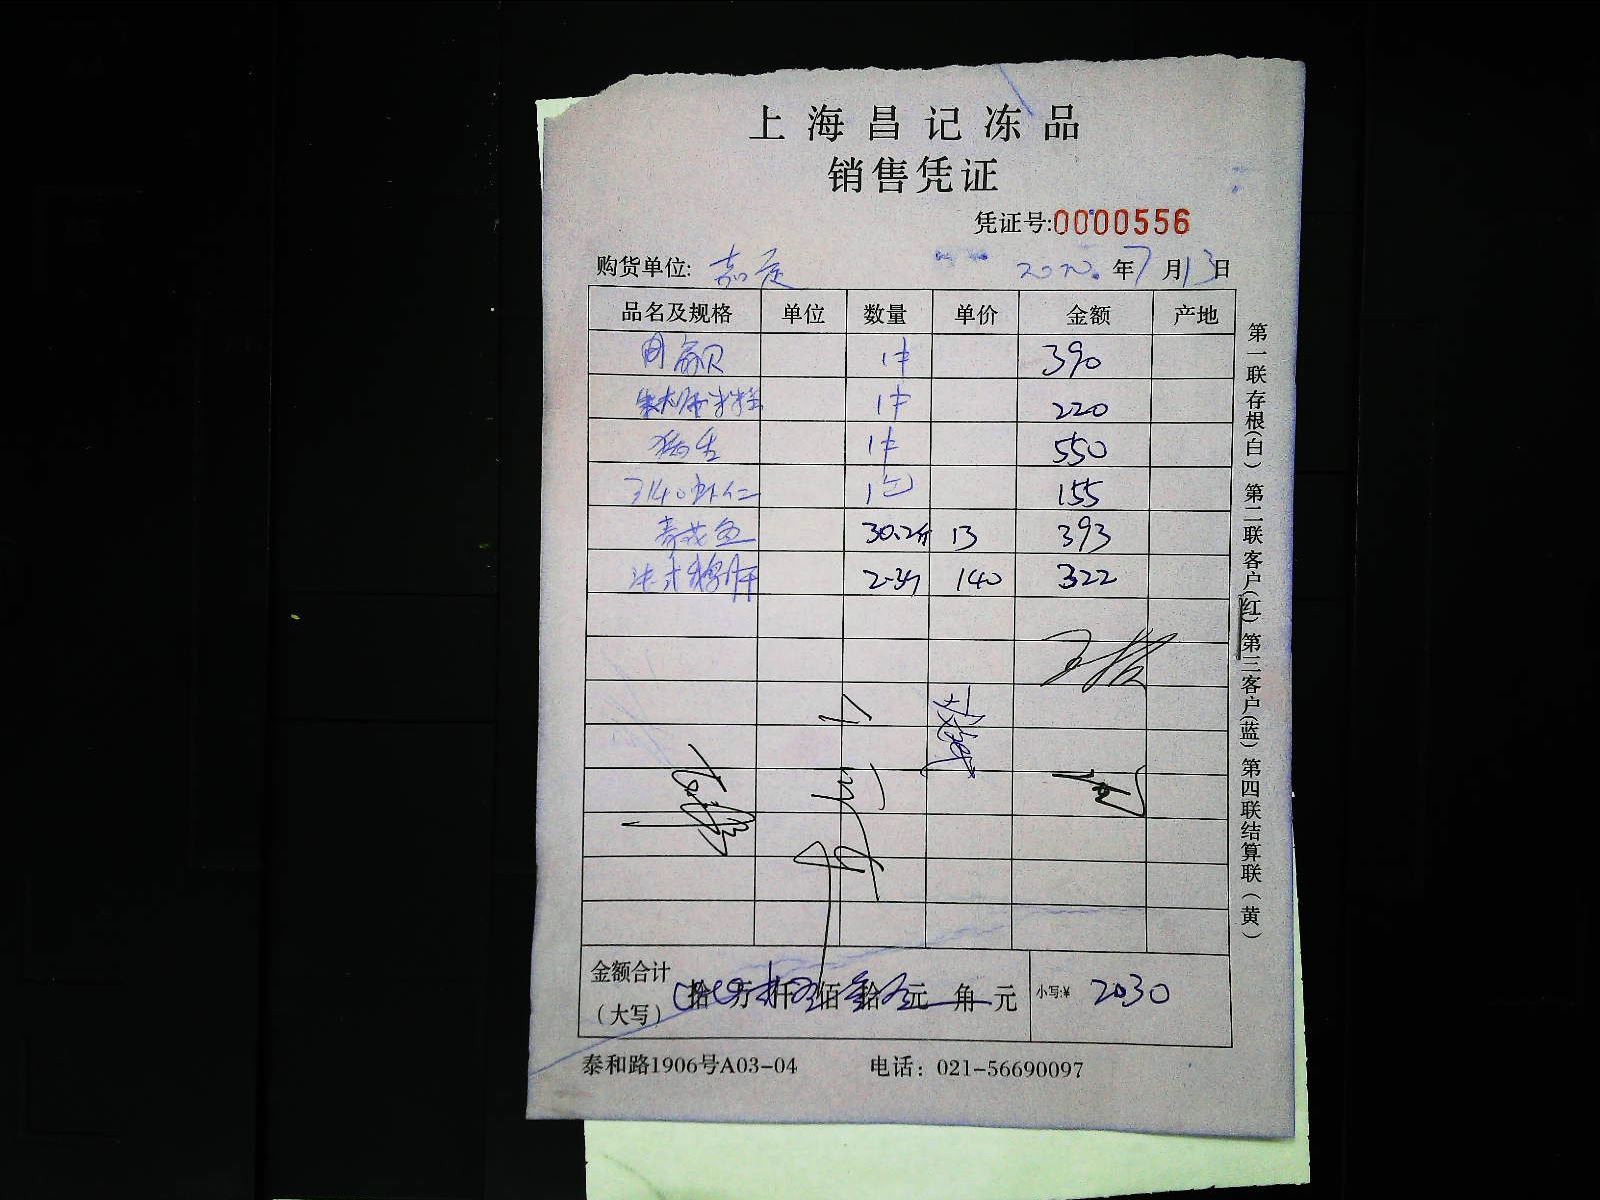 上海昌记冻品
销售凭证
凭证号:0000556
购货单位: 嘉定 2020年7月13日
品名及规格 单位 数量 单价 金额 产地
贝 1件 390
1件 220
1件 550
3140虾仁 1包 155
鱼 30.2斤 13 393
法式鹅肝 2.3斤 140 322
金额合计
(大写) 拾 万 仟 佰 拾 元 角 元 小写:¥ 2030
泰和路1906号A03-04 电话：021-56690097
第一联存根(白) 第二联客户(红) 第三客户(蓝) 第四联结算联(黄)